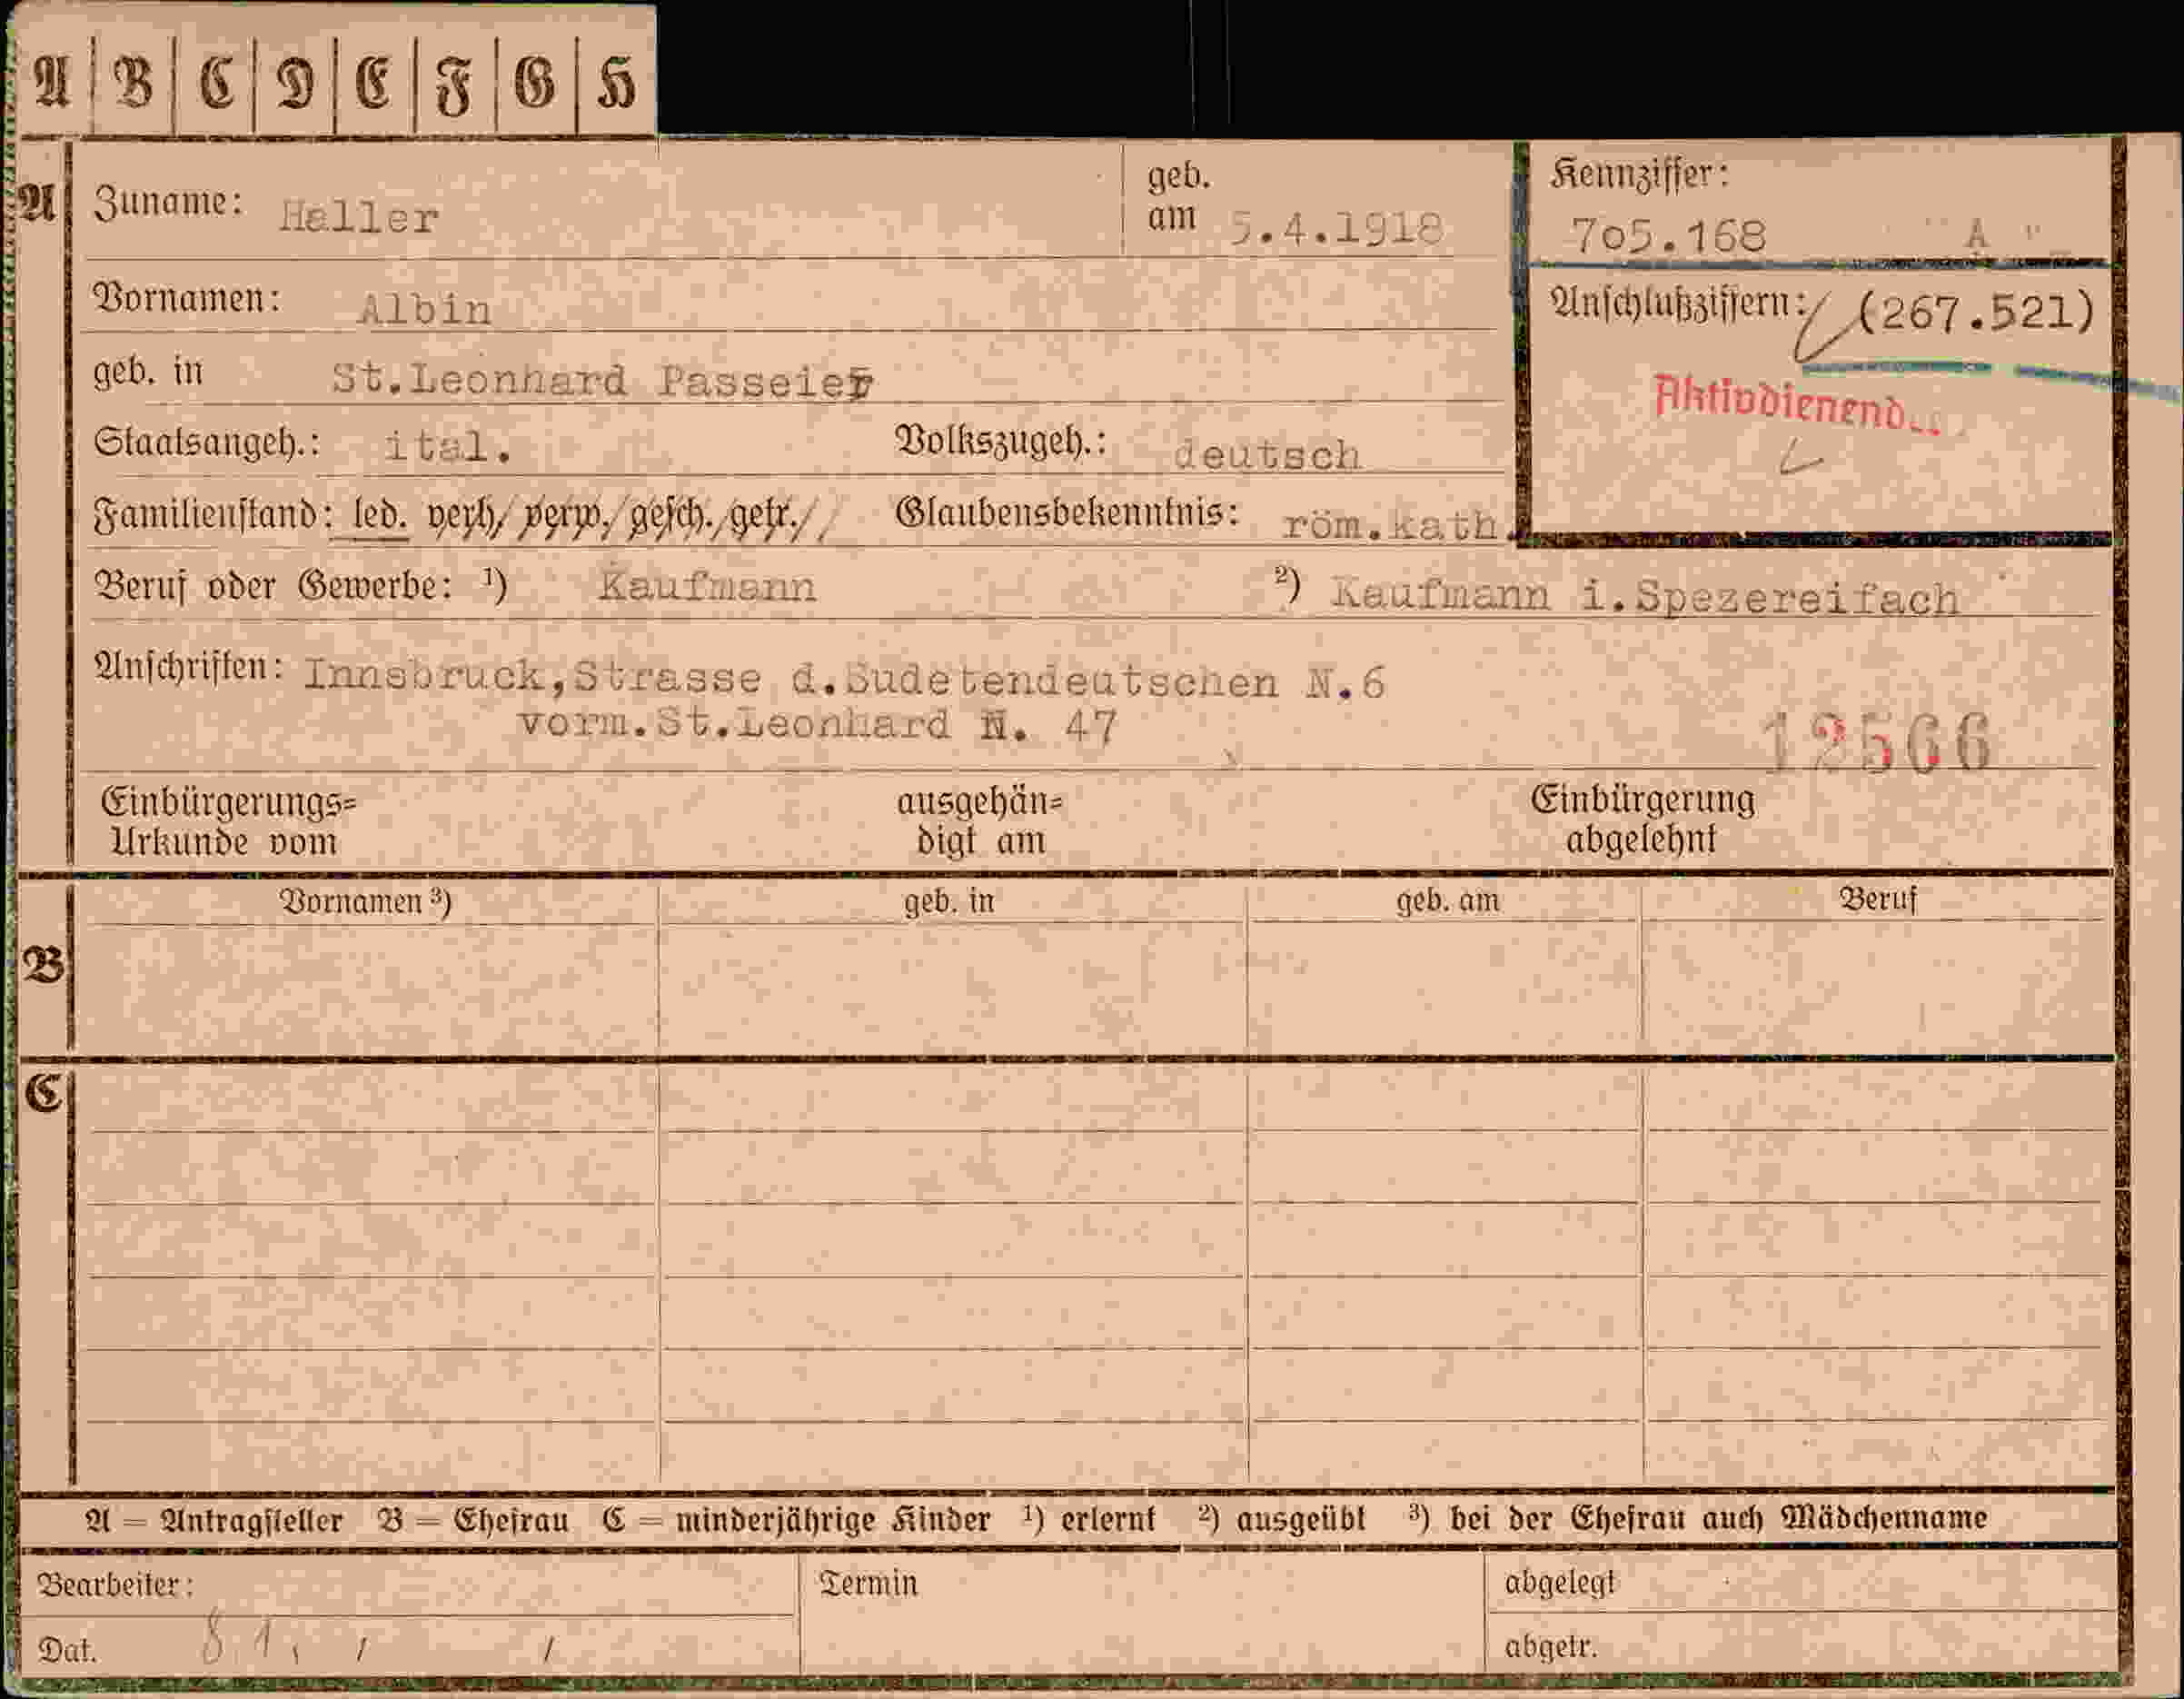 A B C D E F G H
A
Zuname: Haller
geb. am 5.4.1918
Kennziffer:
705.168 "A"
Vornamen: Albin
Anschlußziffern: (267.521)
geb. in St.Leonhard Passeier
Aktivdienend..
Staatsangeh.: ital. Volkszugeh.: deutsch
Familienstand: led. verh. verw. gesch. getr. Glaubensbekenntnis: röm.kath.
Beruf oder Gewerbe: ¹) Kaufmann ²) Kaufmann i.Spezereifach
Anschriften: Innsbruck,Strasse d.Sudetendeutschen N.6
vorm.St.Leonhard N. 47
12566
Einbürgerungs=
Urkunde vom
ausgehän=
digt am
Einbürgerung
abgelehnt
Vornamen ³) geb. in geb. am Beruf
B
C
A = Antragsteller B = Ehefrau C = minderjährige Kinder ¹) erlernt ²) ausgeübt ³) bei der Ehefrau auch Mädchenname
Bearbeiter: Termin abgelegt
Dat. abgetr.